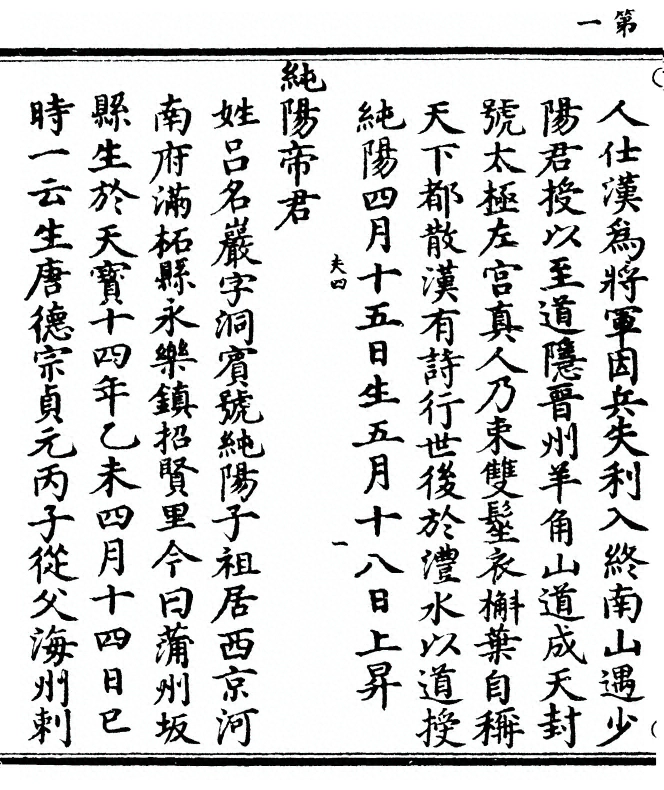 第一
人仕漢爲將軍因兵失利入終南山遇少
陽君授以至道隱晉州羊角山道成天封
號太極左宮真人乃束雙髽衣槲葉自稱
天下都散漢有詩行世後於澧水以道授
純陽四月十五日生五月十八日上昇
夫四 一
純陽帝君
姓呂名巖字洞賓號純陽子祖居西京河
南府滿柘縣永樂鎮招賢里今曰蒲州坂
縣生於天寶十四年乙未四月十四日巳
時一云生唐德宗貞元丙子從父海州刺